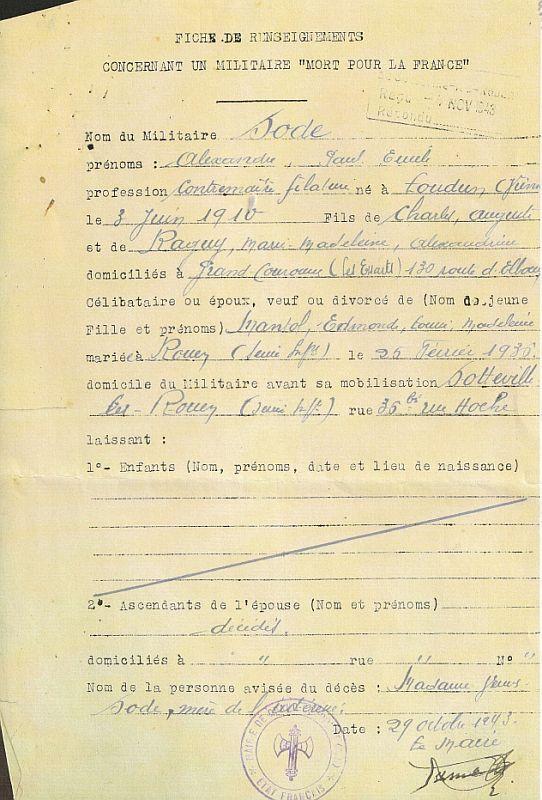 FICHE DE RENSEIGNEMENTS
CONCERNANT UN MILITAIRE "MORT POUR LA FRANCE"
Reçu NOV 1943
Répondu
Nom du Militaire Sode
prénoms : Alexandre, Paul Emile
profession Contremaître filature né à Loudun
le 3 Juin 1910 Fils de Charles, Auguste
et de Raguy, Marie-Madeleine, Alexandrine
domiciliés à Grand Couronne (les Essarts) 130 route d'Elbeuf
Célibataire ou époux, veuf ou divorcé de (Nom de jeune
Fille et prénoms) Edmonde, Louise Madeleine
mariée à Rouen (Seine Infre) le 26 Février 1936.
domicile du Militaire avant sa mobilisation Sotteville
les-Rouen (Seine Infre) rue 36 bis rue Hoche
laissant :
1°- Enfants (Nom, prénoms, date et lieu de naissance)
2°- Ascendants de l'épouse (Nom et prénoms)
décédés.
domiciliés à " rue " N° "
Nom de la personne avisée du décès : Madame
Sode, mère de l'intéressé.
Date : 29 octobre 1943.
Le Maire
MAIRIE DE
ETAT FRANÇAIS